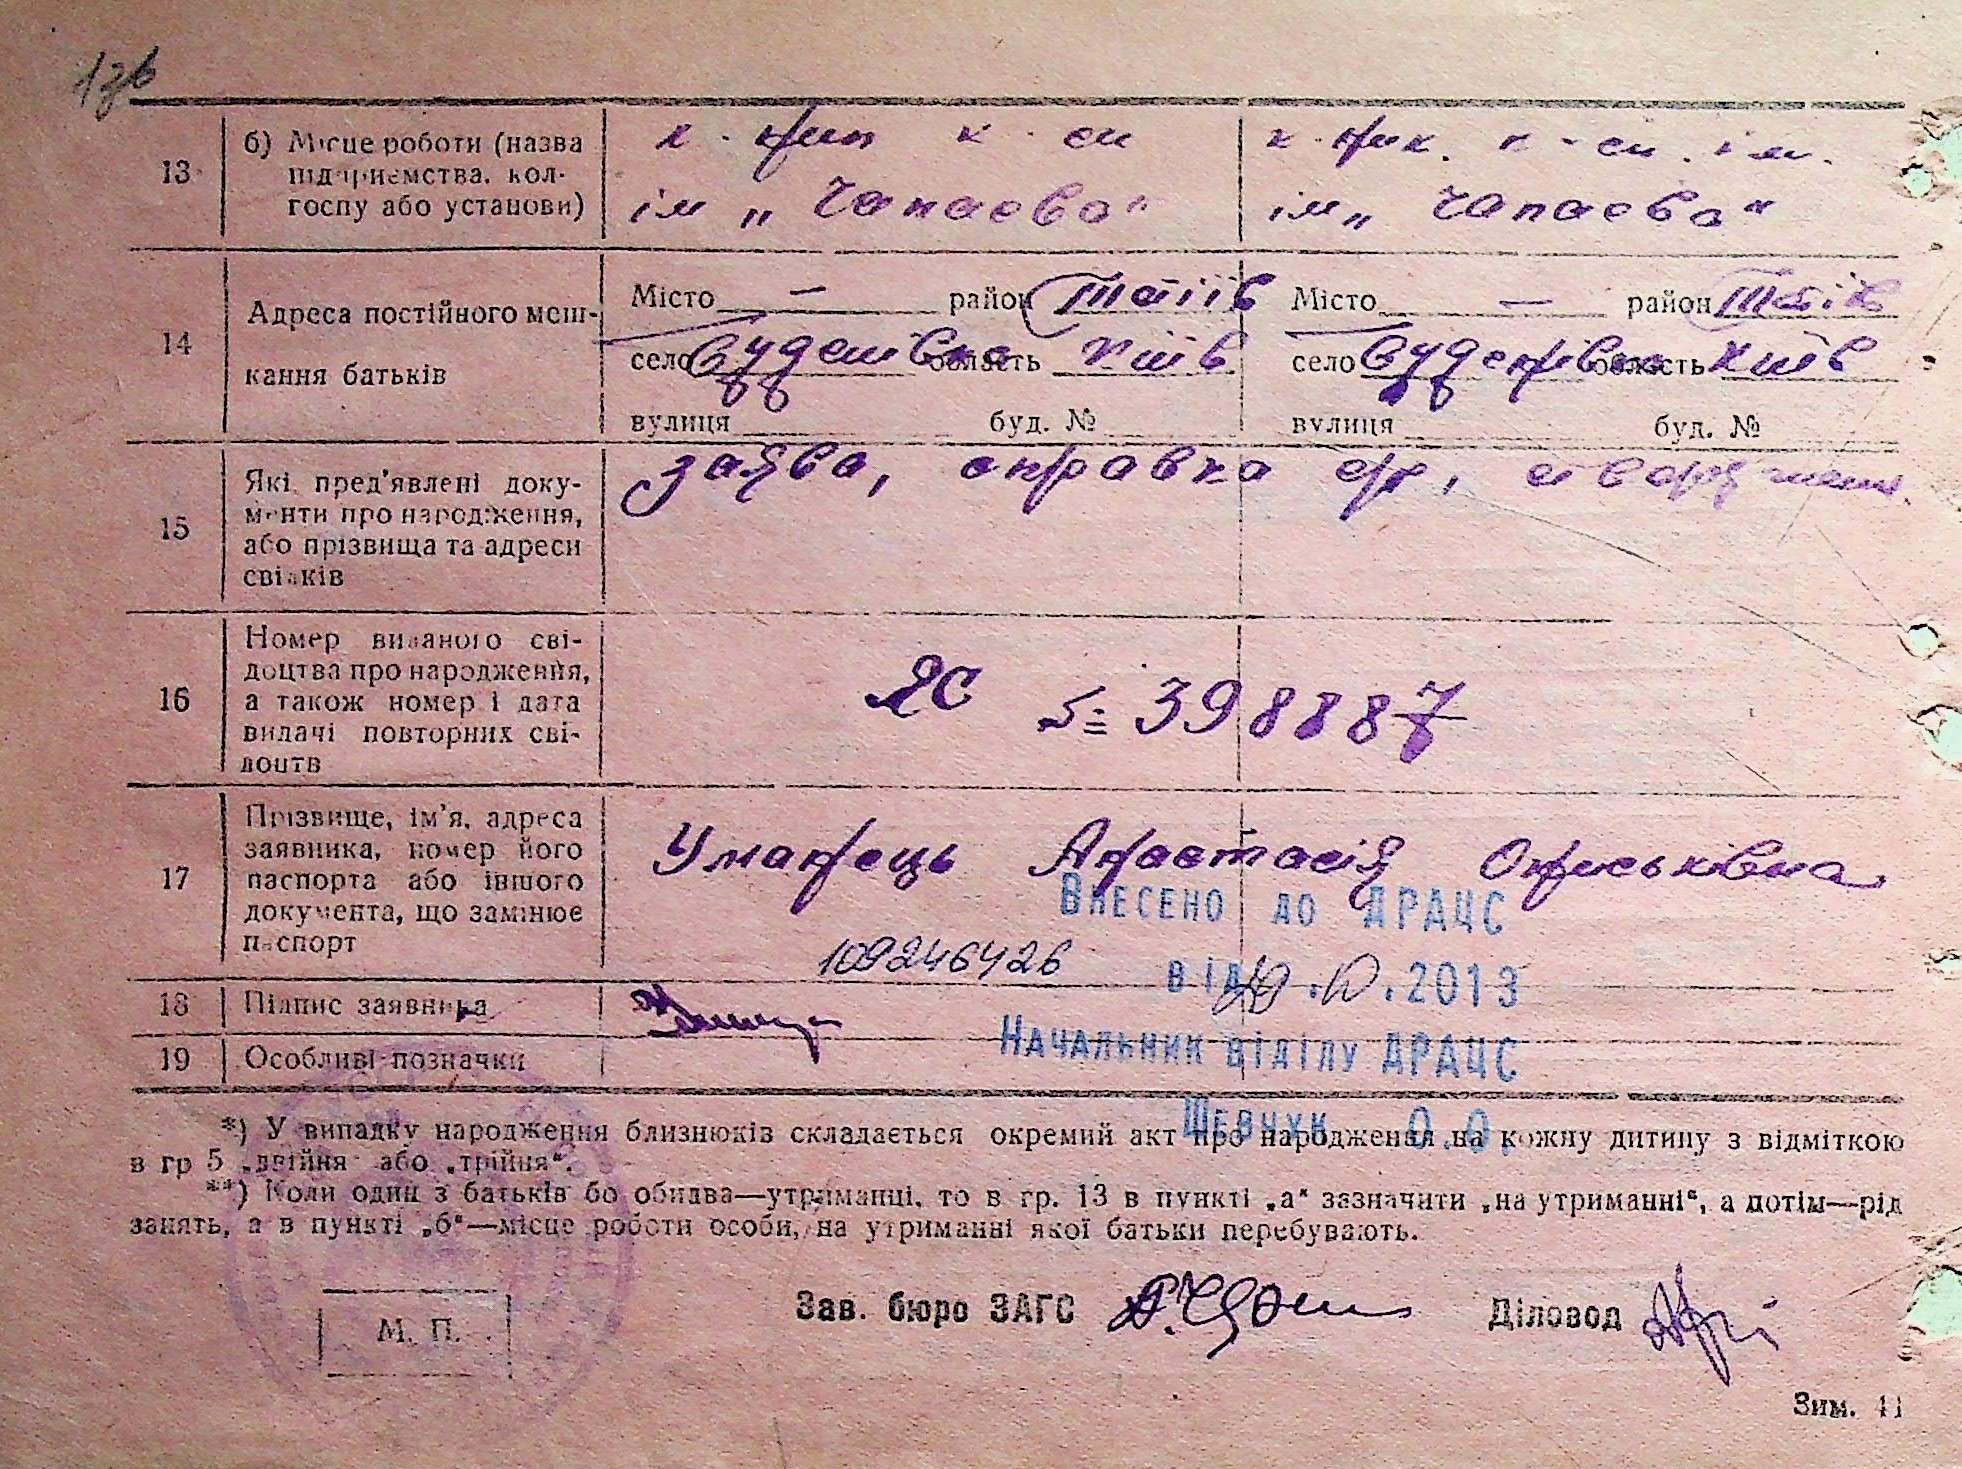 13 б) Місце роботи (назва підприємства, колгоспу або установи)
ім „Чапаєва“ ім „Чапаєва“
14 Адреса постійного мешкання батьків
Місто — район Тетіїв Місто — район Тетіїв
село область Київ село область Київ
вулиця буд. № вулиця буд. №
15 Які пред'явлені документи про народження, або прізвища та адреси свідків
заява, справка
16 Номер виданого свідоцтва про народження, а також номер і дата видачі повторних свідоцтв
ЯС № 398887
17 Прізвище, ім'я, адреса заявника, номер його паспорта або іншого документа, що замінює паспорт
Уманець Анастасія Ониськівна
Внесено до ДРАЦС
109246426
від .10.2013
18 Підпис заявника
Начальник відділу ДРАЦС
19 Особливі позначки
Шевчук О.О.
*) У випадку народження близнюків складається окремий акт про народження на кожну дитину з відміткою
в гр 5 „двійня“ або „трійня“.
**) Коли один з батьків бо обидва—утриманці, то в гр. 13 в пункті „а“ зазначити „на утриманні“, а потім—рід
занять, а в пункті „б“—місце роботи особи, на утриманні якої батьки перебувають.
Зав. бюро ЗАГС Діловод
М. П.
Зим. 41